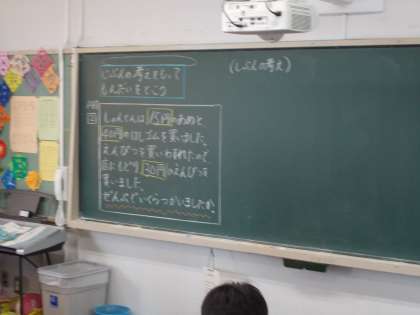 じぶんの考えをもって
もんだいをとこう
(じぶんの考え)
しゅんさんは15円のあめと
40円のけしゴムを買いました。
えんぴつを買いわすれたので
店にもどり30円のえんぴつを
買いました。
ぜんぶでいくらつかいましたか。